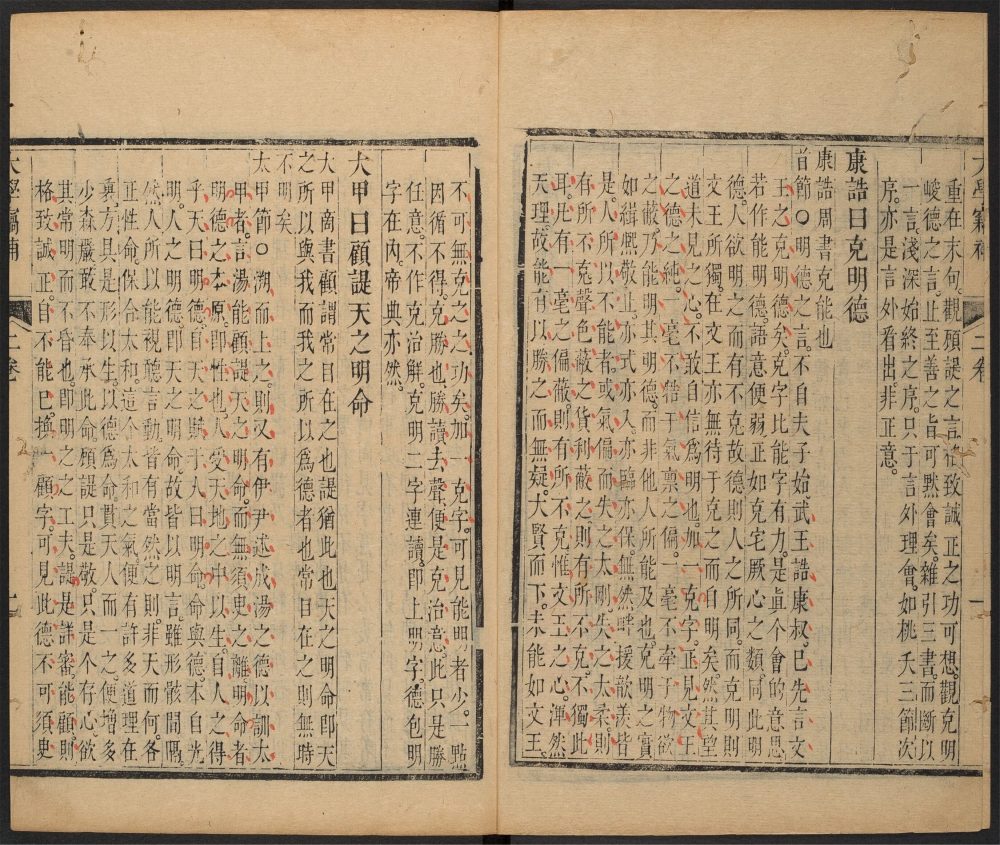 重在末句觀顧諟之言格致誠正之功可想觀克明
峻德之言止至善之旨可默會矣雜引三書而斷以
一言淺深始終之序只于言外理會如桃夭三節次
序亦是言外看出非正意
康誥曰克明德
康誥周書克能也
首節○明德之言不自夫子始武王誥康叔已先言文
王之克明德矣克字比能字有力是眞个會的意思
若作能明德語意便弱正如克宅厥心之類同此明
德人欲明之而有不克故德則人之所同而克明則
文王所獨在文王亦無待于克之而自明矣然其望
道未見之心不敢自信爲明也加一克字正見文王
之德之純一毫不牿于氣禀之偏一毫不牽于物欲
之蔽乃能明其明德而非他人所能及也克明之實
如緝熙敬止亦式亦入亦臨亦保無然畔援歆羡皆
是人所以不能者或氣偏而失之太剛失之大柔則
有所不克聲色蔽之貨利蔽之則有所不克不獨此
耳凡有一毫之偏蔽則有所不克惟文王之心渾然
天理故能有以勝之而無疑大賢而下未能如文王
不可無克之之功矣加一克字可見能明者少一㸃
因循不得克勝也勝讀去聲便是克治意此只是勝
任意不作克治解克明二字連讀即上明字德包明
字在內帝典亦然
大甲曰顧諟天之明命
大甲商書顧謂常目在之也諟猶此也天之明命即天
之所以與我而我之所以爲德者也常目在之則無時
不明矣
太甲節○溯而上之則又有伊尹述成湯之德以訓太
甲者言湯能顧諟天之明命而無須臾之離明命者
明德之本原即性也人受天地之中以生自人之得
乎天曰明德自天之賦于人曰明命命與德本自光
明人之明德即天之明命故皆以明言雖形骸間隔
然人所以能視聽言動皆有當然之則非天而何各
正性命保合太和這个太和之氣便有許多道理在
裏方具是形以生以德爲命貫天人而一之便增多
少森嚴敢不奉承此命顧諟只是敬只是个存心欲
其常明而不昏也即明之之工夫諟是詳審能顧則
格致誠正自不能已換一顧字可見此德不可須臾